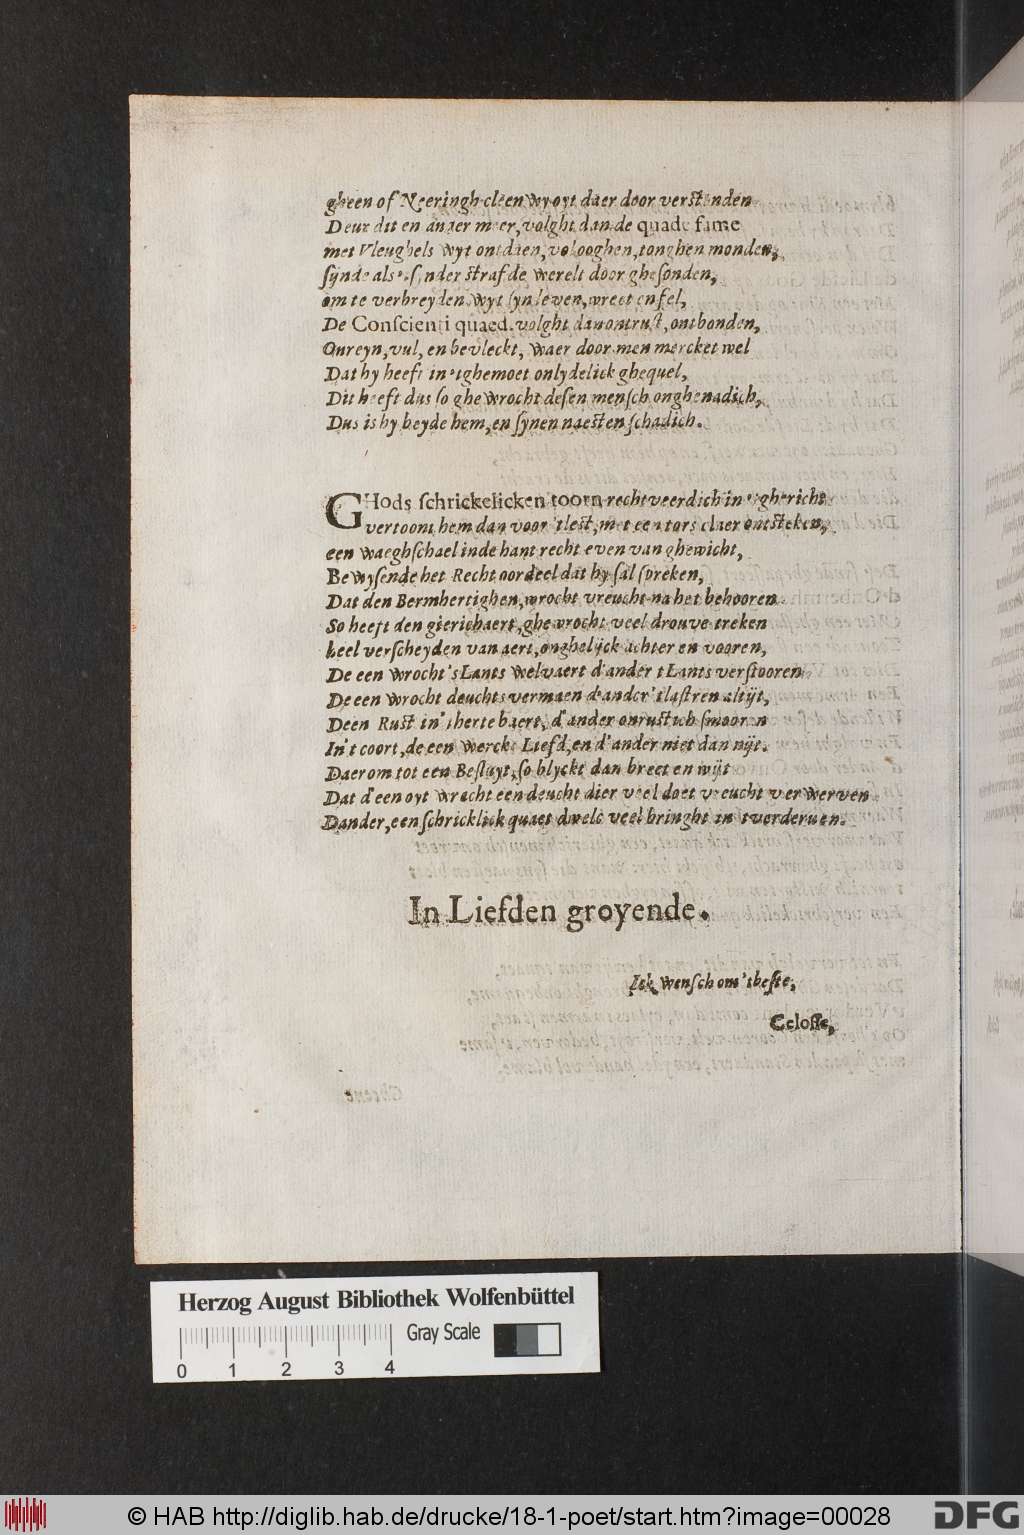 gheen of Neeringh cleen wyoyt daer door verstonden
Deur dit en ander meer, volght dan de quade fame
met Vleughels wyt ontdaen, vol ooghen, tonghen monden,
ſijnde als ſynder straf de werelt door gheſonden,
om te verbreyden wyt ſyn leven, wreet en fel,
De Conſcienti quaed volght dan ontrust, ontbonden,
Onreyn, vul, en bevleckt, waer door men mercket wel
Dat hy heeft in 'tghemoet onlydelick ghequel,
Dit heeft dus ſo ghewrocht deſen menſch onghenadich,
Dus is hy beyde hem, en ſynen naesten ſchadich.
GHods ſchrickelicken toorn rechtveerdich in 'tghericht
vertoont hem dan voor 'tlest, met een tors claer ontsteken,
een waeghſchael inde hant recht even van ghewicht,
Bewyſende het Recht oordeel dat hy ſal ſpreken,
Dat den Bermhertighen, wrocht vreucht na het behooren
So heeft den gierichaert, ghewrocht veel drouve treken
heel verſcheyden van aert, onghelijck achter en vooren,
De een wrocht 's Lants welvaert d'ander t Lants verſtooren
De een wrocht deuchts vermaen d'ander 't laſtren altijt,
Deen Rust in 't herte baert, d'ander onrustich ſmooren
In't coort, de een werckt Liefd, en d'ander niet dan nijt.
Daerom tot een Beſluyt, ſo blyckt dan breet en wijt
Dat d'een oyt wracht een deucht dier veel doet vreucht verwerven
Dander, een ſchricklick quaet dwelc veel bringht in t verderuen.
In Liefden groyende.
Ick wenſch om 'tbeſte,
Celoſſe,
Gheene
Herzog August Bibliothek Wolfenbüttel
Gray Scale
0 1 2 3 4
© HAB http://diglib.hab.de/drucke/18-1-poet/start.htm?image=00028
DFG